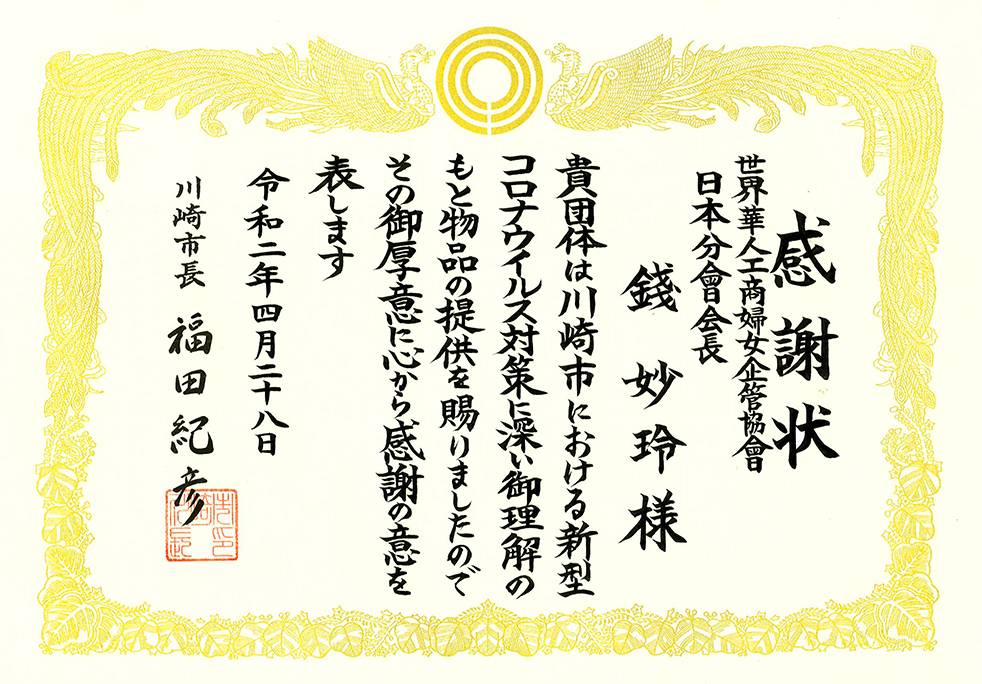 感謝状
世界華人工商婦女企管協會
日本分會会長
錢妙玲様
貴団体は川崎市における新型
コロナウイルス対策に深い御理解の
もと物品の提供を賜りましたので
その御厚意に心から感謝の意を
表します
令和二年四月二十八日
川崎市長 福田紀彦